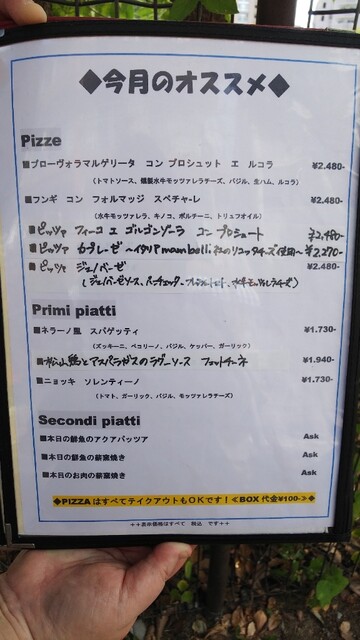 ◆今月のオススメ◆
Pizze
■プローヴォラマルゲリータ コン プロシュット エ ルコラ ¥2.480-
（トマトソース、燻製水牛モッツァレラチーズ、バジル、生ハム、ルコラ）
■フンギ コン フォルマッジ スペチャーレ ¥2.480-
（水牛モッツァレラ、キノコ、ポルチーニ、トリュフオイル）
■ピッツァ フィーコ エ ゴルゴンゾーラ コン プロシュート ¥2,480-
■ピッツァ カプレーゼ ～イタリア mambelli社のリコッタチーズ使用～ ¥2,270-
■ピッツァ ジェノベーゼ ¥2.480-
（ジェノベーゼソース、パンチェッタ、水牛モッツァレラチーズ）
Primi piatti
■ネラーノ風 スパゲッティ ¥1.730-
（ズッキーニ、ペコリーノ、バジル、ケッパー、ガーリック）
■松山鶏とアスパラガスのラグーソース フェットチーネ ¥1.940-
■ニョッキ ソレンティーノ ¥1.730-
（トマト、ガーリック、バジル、モッツァレラチーズ）
Secondi piatti
■本日の鮮魚のアクアパッツア Ask
■本日の鮮魚の薪窯焼き Ask
■本日のお肉の薪窯焼き Ask
◆PIZZAはすべてテイクアウトもOKです！≪BOX代金¥100-≫◆
++表示価格はすべて 税込 です++